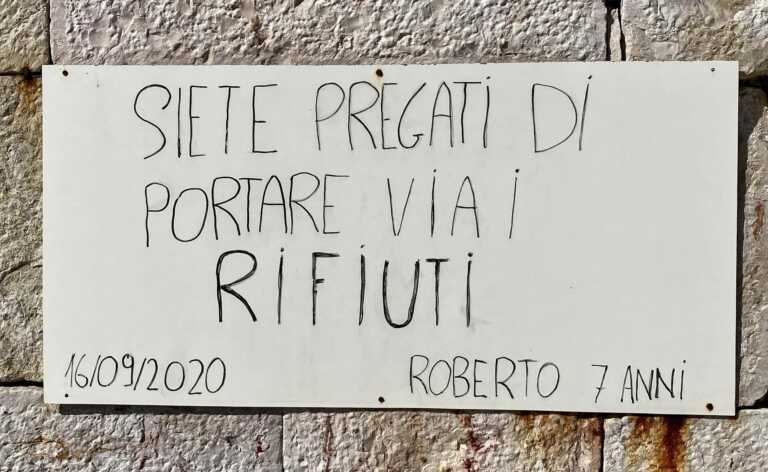 SIETE PREGATI DI
PORTARE VIA I
RIFIUTI
16/09/2020 ROBERTO 7 ANNI